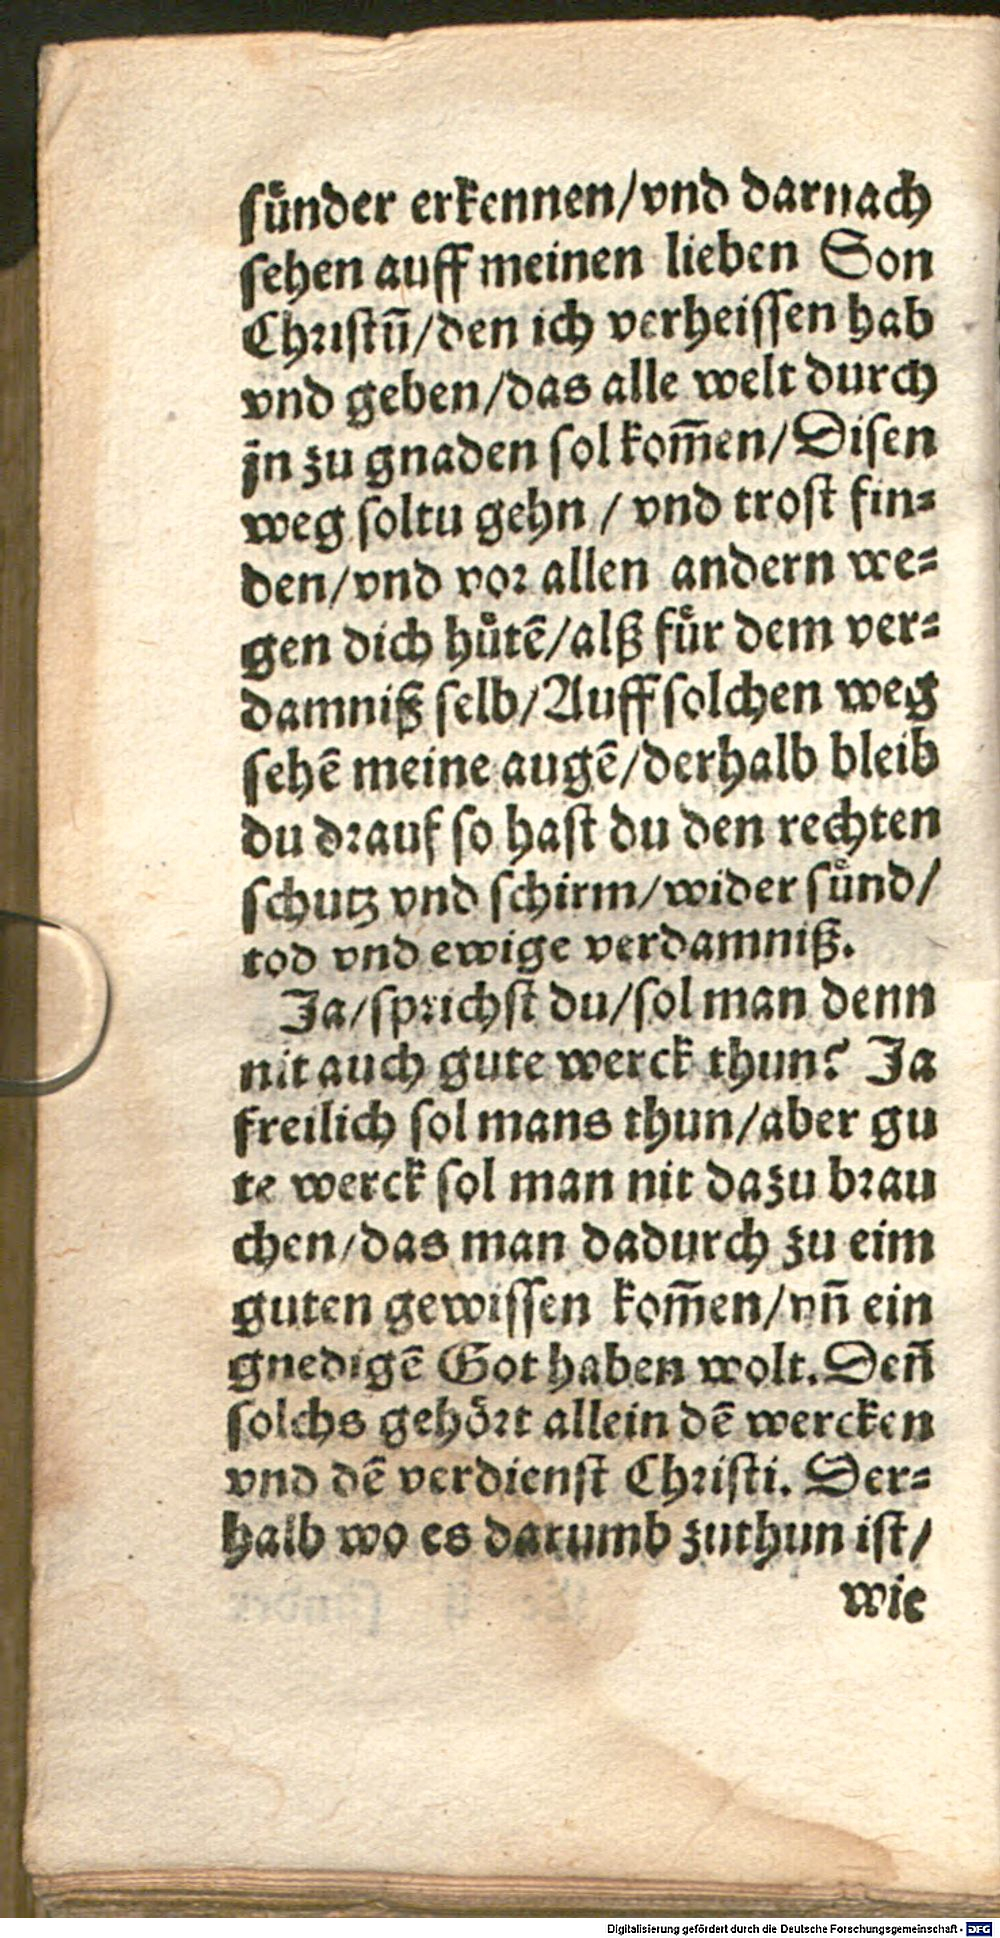 ſuͤnder erkennen/vnd darnach
ſehen auff meinen lieben Son
Chꝛiſtū/den ich verheiſſen hab
vnd geben/das alle welt durch
jn zu gnaden ſol kom̄en/Diſen
weg ſoltu gehn / vnd troſt fin⸗
den/vnd voꝛ allen andern we⸗
gen dich huͤtē/alß fuͤr dem ver⸗
damniß ſelb/Auff ſolchen weg
ſehē meine augē/derhalb bleib
du dꝛauf ſo haſt du den rechten
ſchutz vnd ſchirm/wider ſuͤnd/
tod vnd ewige verdamniß.
Ja/ſpꝛichſt du/ſol man denn
nit auch gute werck thun? Ja
freilich ſol mans thun/aber gu
te werck ſol man nit dazu bꝛau
chen/das man dadurch zu eim
guten gewiſſen kom̄en/vn̄ ein
gnedigē Got haben wolt. Den̄
ſolchs gehoͤꝛt allein dē wercken
vnd dē verdienſt Chꝛiſti. Der⸗
halb wo es darumb zuthun iſt/
wie
Digitalisierung gefördert durch die Deutsche Forschungsgemeinschaft - DFG